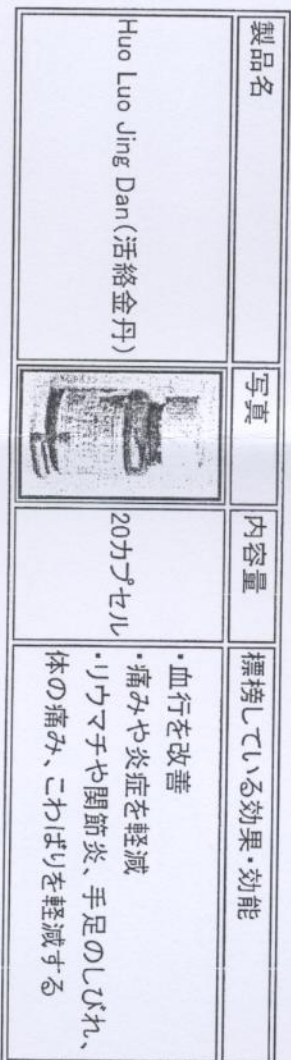 製品名
写真
内容量
標榜している効果・効能
Huo Luo Jing Dan(活絡金丹)
20カプセル
・血行を改善
・痛みや炎症を軽減
・リウマチや関節炎、手足のしびれ、
体の痛み、こわばりを軽減する